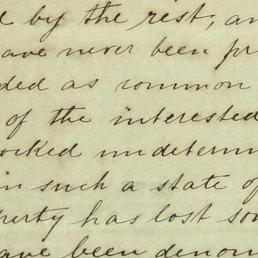 d by the rest; an
ave never been pr
ded as common
of the interested
ocked undeterm
in such a state of
perty has lost so
ave been denou